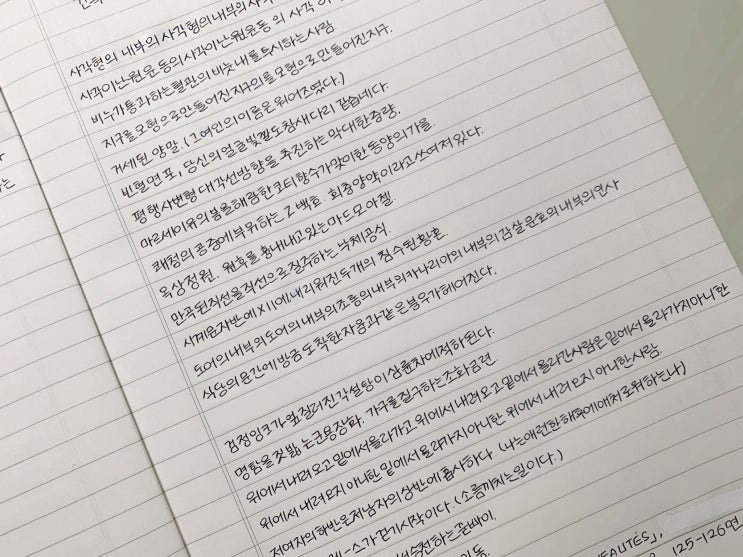 사각형의 내부의 사각형의 내부의 사각
사각이난원운동의사각이난원운동 의 사각 이
비누가통과하는혈관의 비눗내를투시하는사람.
지구를모형으로만들어진지구의를모형으로만들어진지구.
거세된 양말. (그여인의이름은워어즈였다.)
빈혈면포, 당신의얼굴빛깔도참새다리 같습네다.
평행사변형 대각선방향을 추진하는 막대한중량.
마르세이유의봄을해람한코티향수가맞이한동양의가을.
쾌청의공중에부유하는 Z 백호. 회충양약이라고쓰여져있다.
옥상정원. 원후를흉내내고있는마드모아젤.
만곡된직선을직선으로질주하는 낙체공식.
시계문자반에 XII에내리워진두개의 침수된황혼.
도어의내부의도어의내부의조롱의내부의카나리아의내부의감살문호의내부의인사
식당의문간에방금도착한자웅과같은붕우가헤어진다.
검정잉크가엎질러진각설탕이삼륜차에적하된다.
명함을짓밟는군용장화. 가구를질구하는조화금련.
위에서내려오고밑에서올라가고위에서내려오고밑에서올라간사람은밑에서올라가지아니한
위에서내려오지아니한밑에서올라가지아니한위에서내려오지아니한사람.
저여자의하반은저남자의상반에흡사하다. (나는애련한해후에애처로워하는나)
스가걷기시작이다. (소름끼치는일이다.)
승천하는굳빠이.
EAUTÉS」,
125-126면